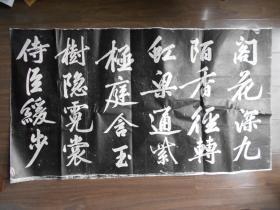 閣花深九
陌香徑轉
虹梁通紫
極庭含玉
樹隐霓裳
侍臣緩步